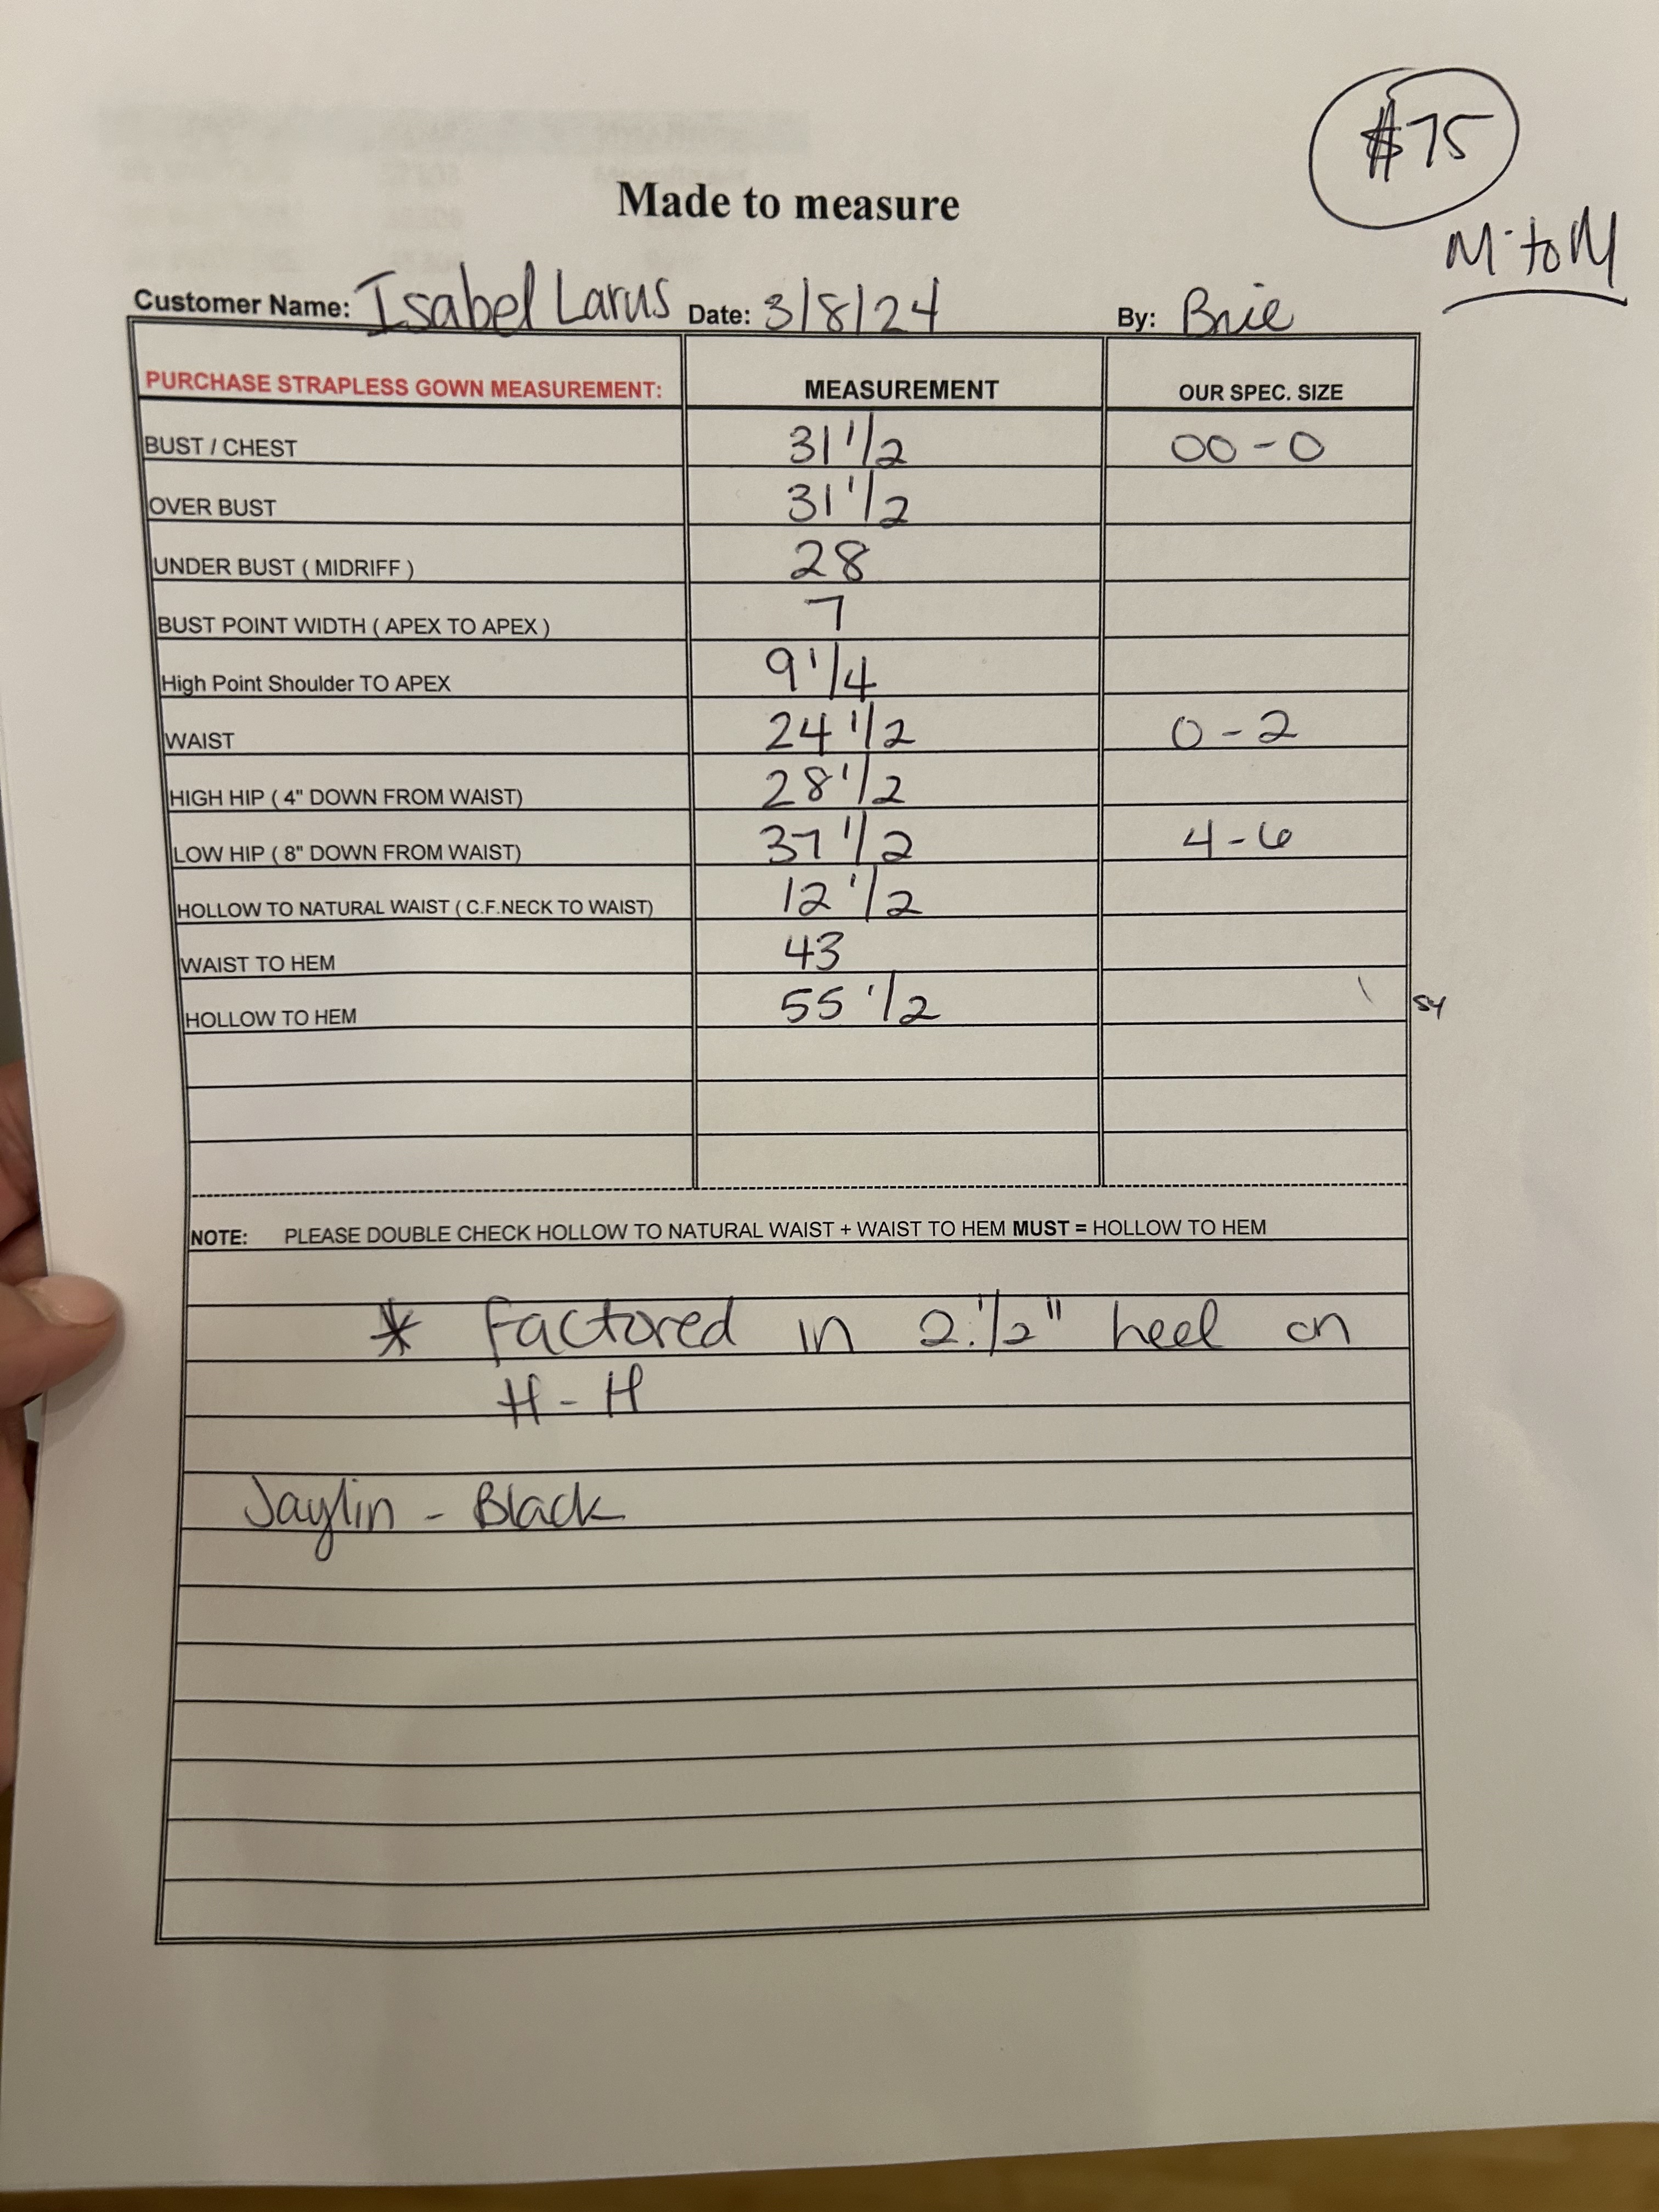 $75
Made to measure
M-to M
Customer Name: Isabel Larus Date: 3/8/24 By: Brie
PURCHASE STRAPLESS GOWN MEASUREMENT: MEASUREMENT OUR SPEC. SIZE
BUST / CHEST 31 1/2 00 - 0
OVER BUST 31 1/2
UNDER BUST ( MIDRIFF ) 28
BUST POINT WIDTH ( APEX TO APEX ) 7
High Point Shoulder TO APEX 9 1/4
WAIST 24 1/2 0 - 2
HIGH HIP ( 4" DOWN FROM WAIST) 28 1/2
LOW HIP ( 8" DOWN FROM WAIST) 37 1/2 4 - 6
HOLLOW TO NATURAL WAIST ( C.F.NECK TO WAIST) 12 1/2
WAIST TO HEM 43
HOLLOW TO HEM 55 1/2
NOTE: PLEASE DOUBLE CHECK HOLLOW TO NATURAL WAIST + WAIST TO HEM MUST = HOLLOW TO HEM
* Factored in 2 1/2" heel on
H - H
Jaylin - Black